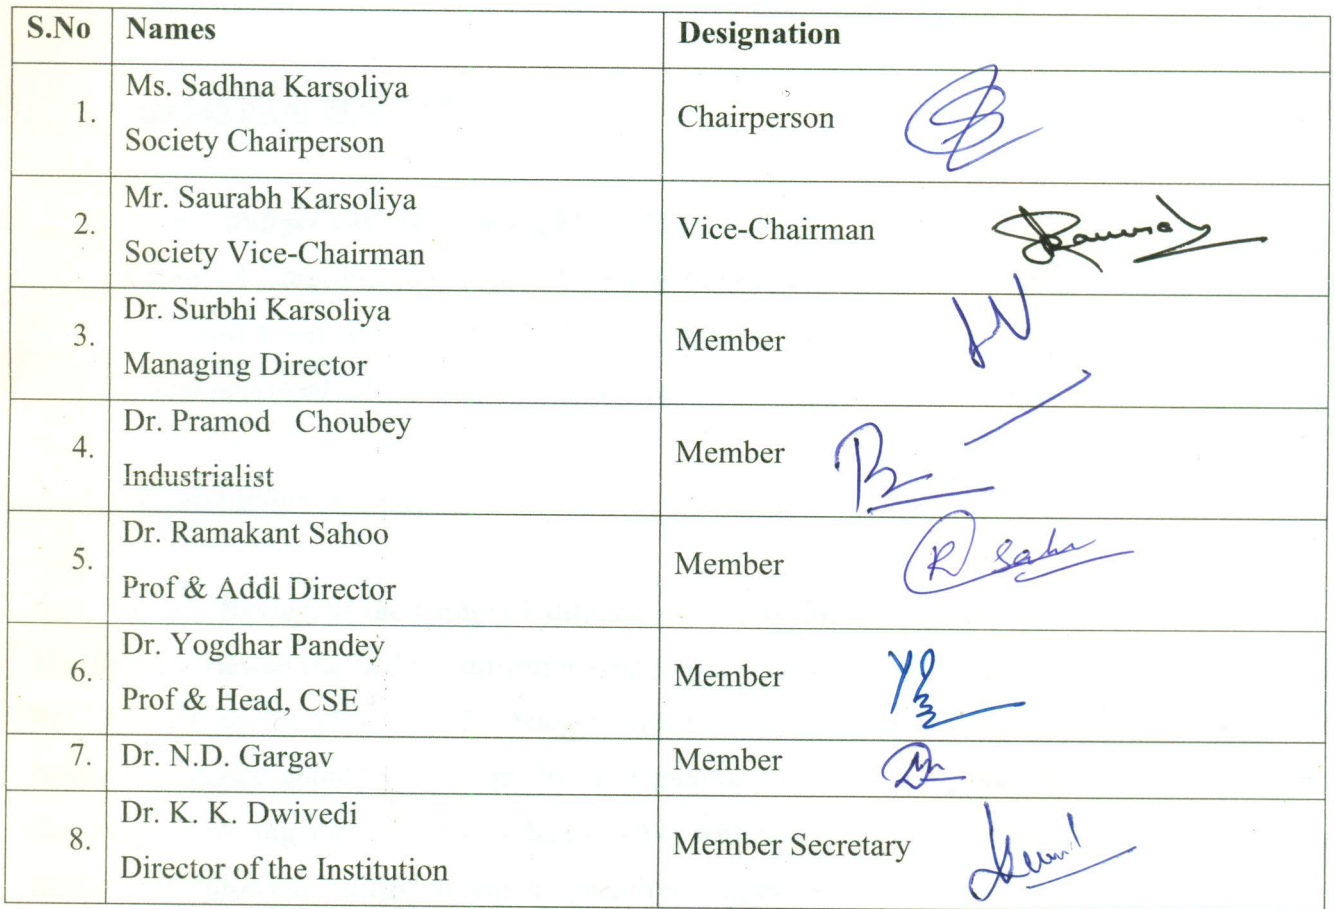 S.No Names Designation
1. Ms. Sadhna Karsoliya
Society Chairperson
Chairperson
2. Mr. Saurabh Karsoliya
Society Vice-Chairman
Vice-Chairman
3. Dr. Surbhi Karsoliya
Managing Director
Member
4. Dr. Pramod Choubey
Industrialist
Member
5. Dr. Ramakant Sahoo
Prof & Addl Director
Member
6. Dr. Yogdhar Pandey
Prof & Head, CSE
Member
7. Dr. N.D. Gargav Member
8. Dr. K. K. Dwivedi
Director of the Institution
Member Secretary